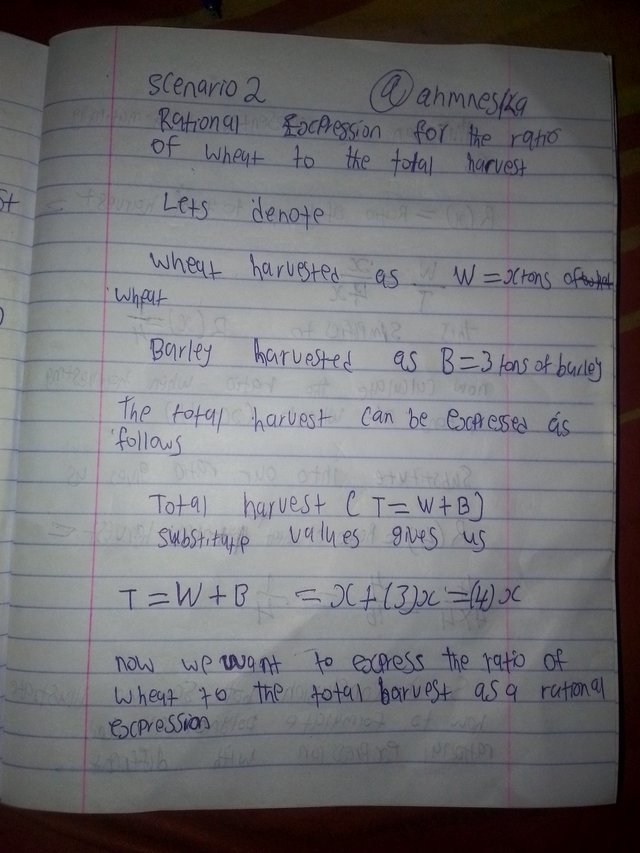 Scenario 2 @ahmneslka
Rational Expression for the ratio
of wheat to the total harvest
Lets denote
Wheat harvested as W = x tons of
wheat
Barley harvested as B = 3 tons of barley
The total harvest can be expressed as
follows
Total harvest ( T = W + B )
substitute values gives us
T = W + B = x + (3)x = (4)x
now we want to express the ratio of
wheat to the total harvest as a rational
expression